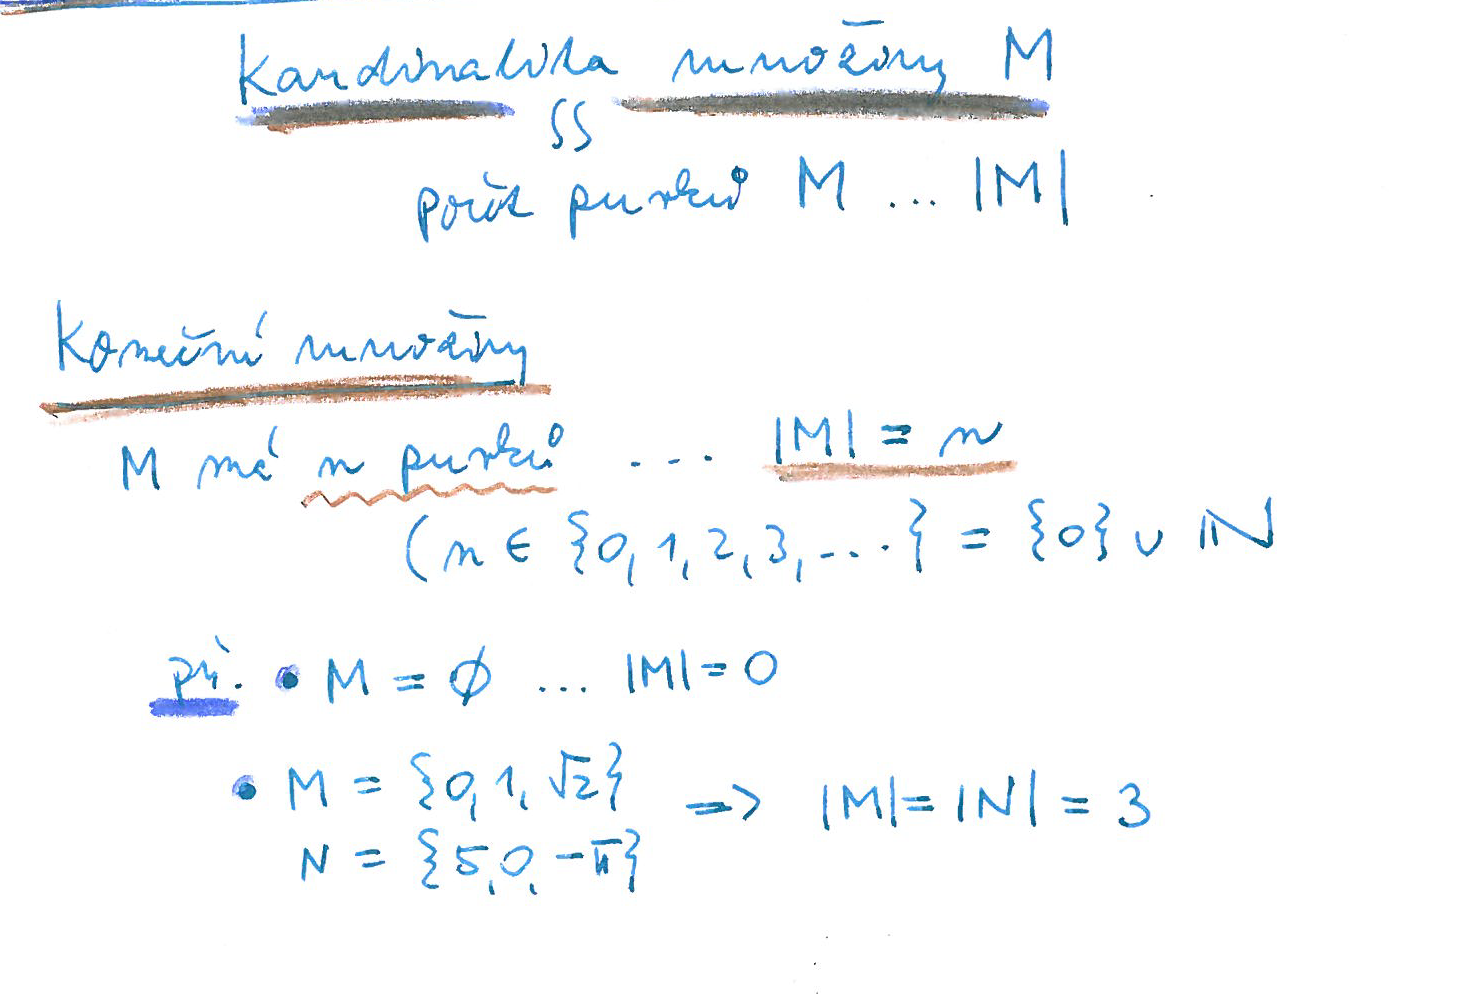 Kardinalita množiny M
počet prvků M ... |M|
Konečné množiny
M má n prvků ... |M| = n
(n ∈ {0, 1, 2, 3, ...} = {0} ∪ ℕ
př. • M = ∅ ... |M| = 0
• M = {0, 1, √2}
N = {5, 0, -π}
=> |M| = |N| = 3